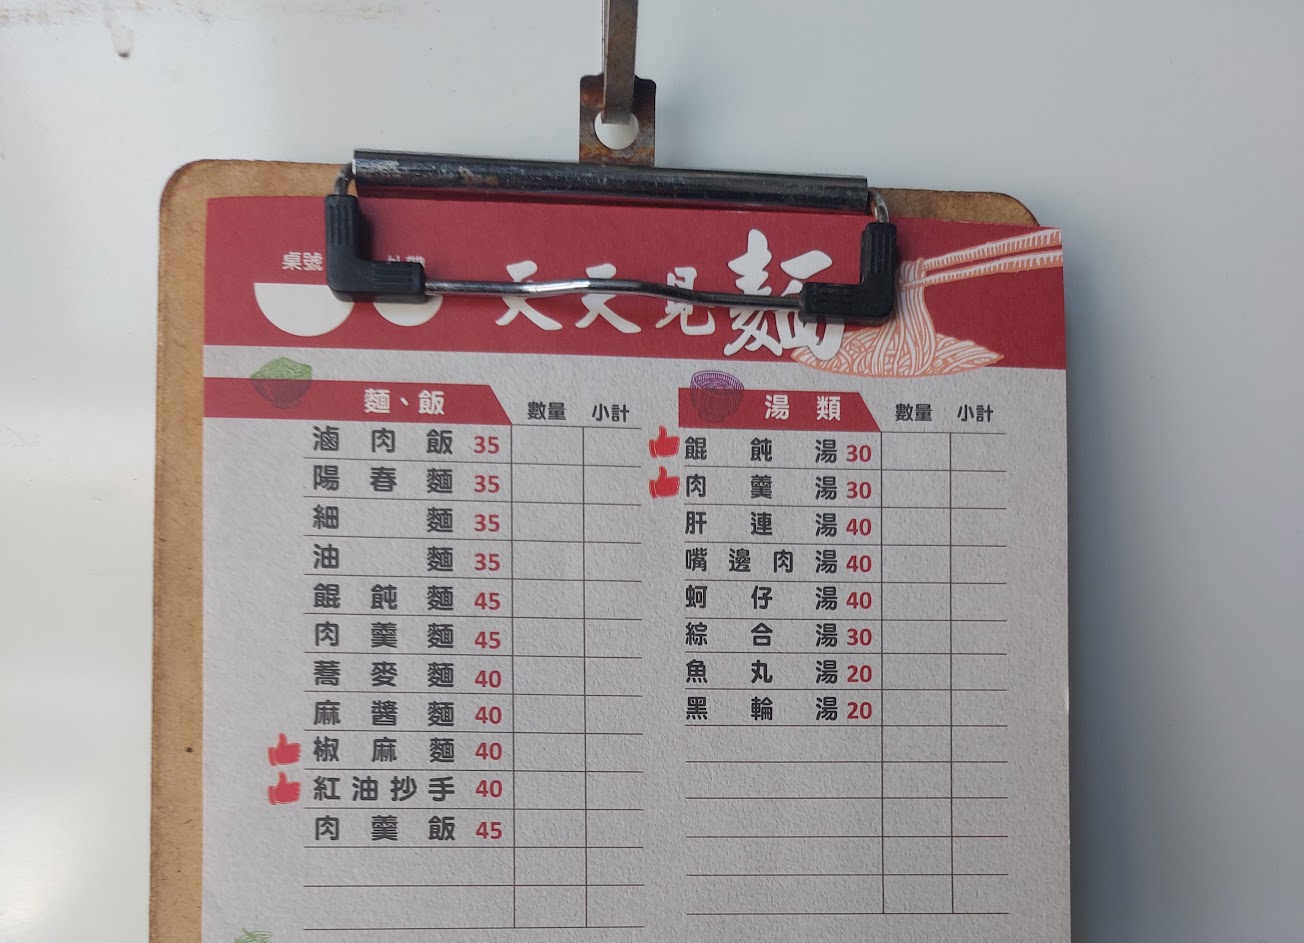 桌號
天天見麵
麵、飯 數量 小計
滷肉飯 35
陽春麵 35
細麵 35
油麵 35
餛飩麵 45
肉羹麵 45
蕎麥麵 40
麻醬麵 40
椒麻麵 40
紅油抄手 40
肉羹飯 45
湯類 數量 小計
餛飩湯 30
肉羹湯 30
肝連湯 40
嘴邊肉湯 40
蚵仔湯 40
綜合湯 30
魚丸湯 20
黑輪湯 20